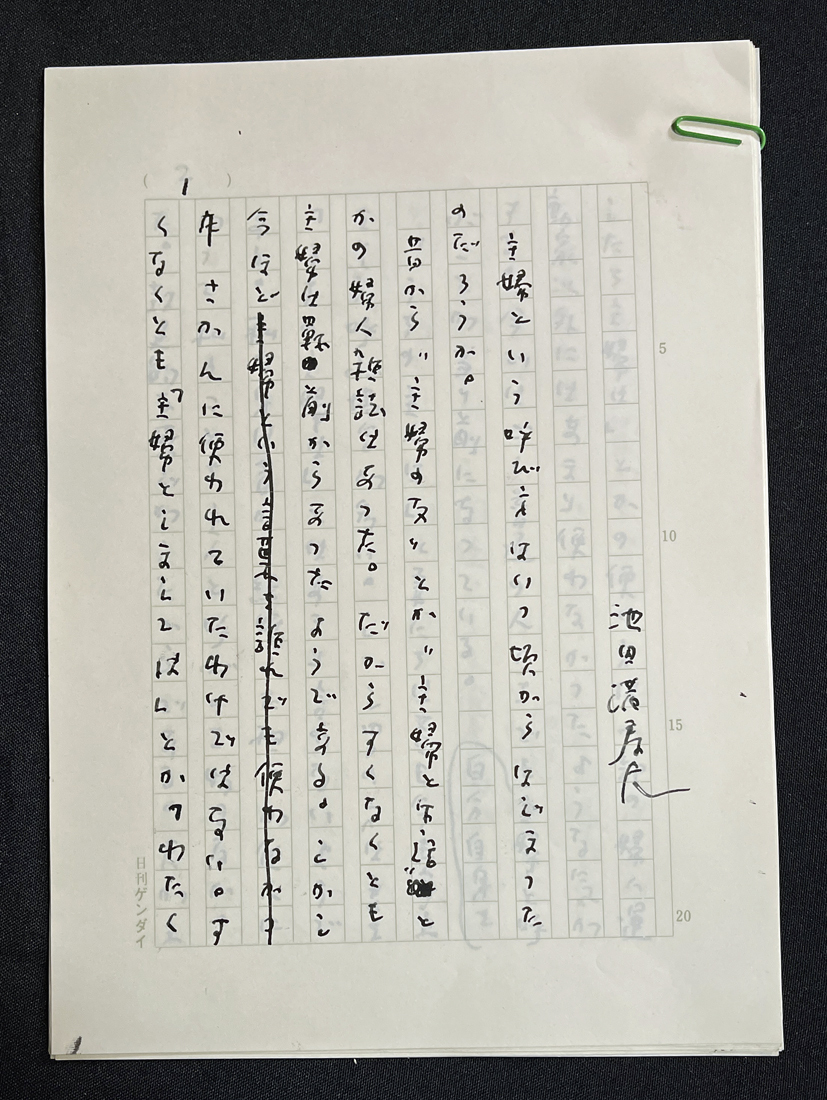 池田満寿夫
主婦という呼び方はいつ頃からはじまった
のだろうか。
昔から〝主婦の友〟とか〝主婦と生活〟と
かの婦人雑誌はあった。だからすくなくとも
主婦は戦前からあったようである。しかし
今ほど
年さかんに使われていたわけではない。す
くなくとも「主婦としましてはしとかつわたく
1
5
10
15
20
日刊ゲンダイ